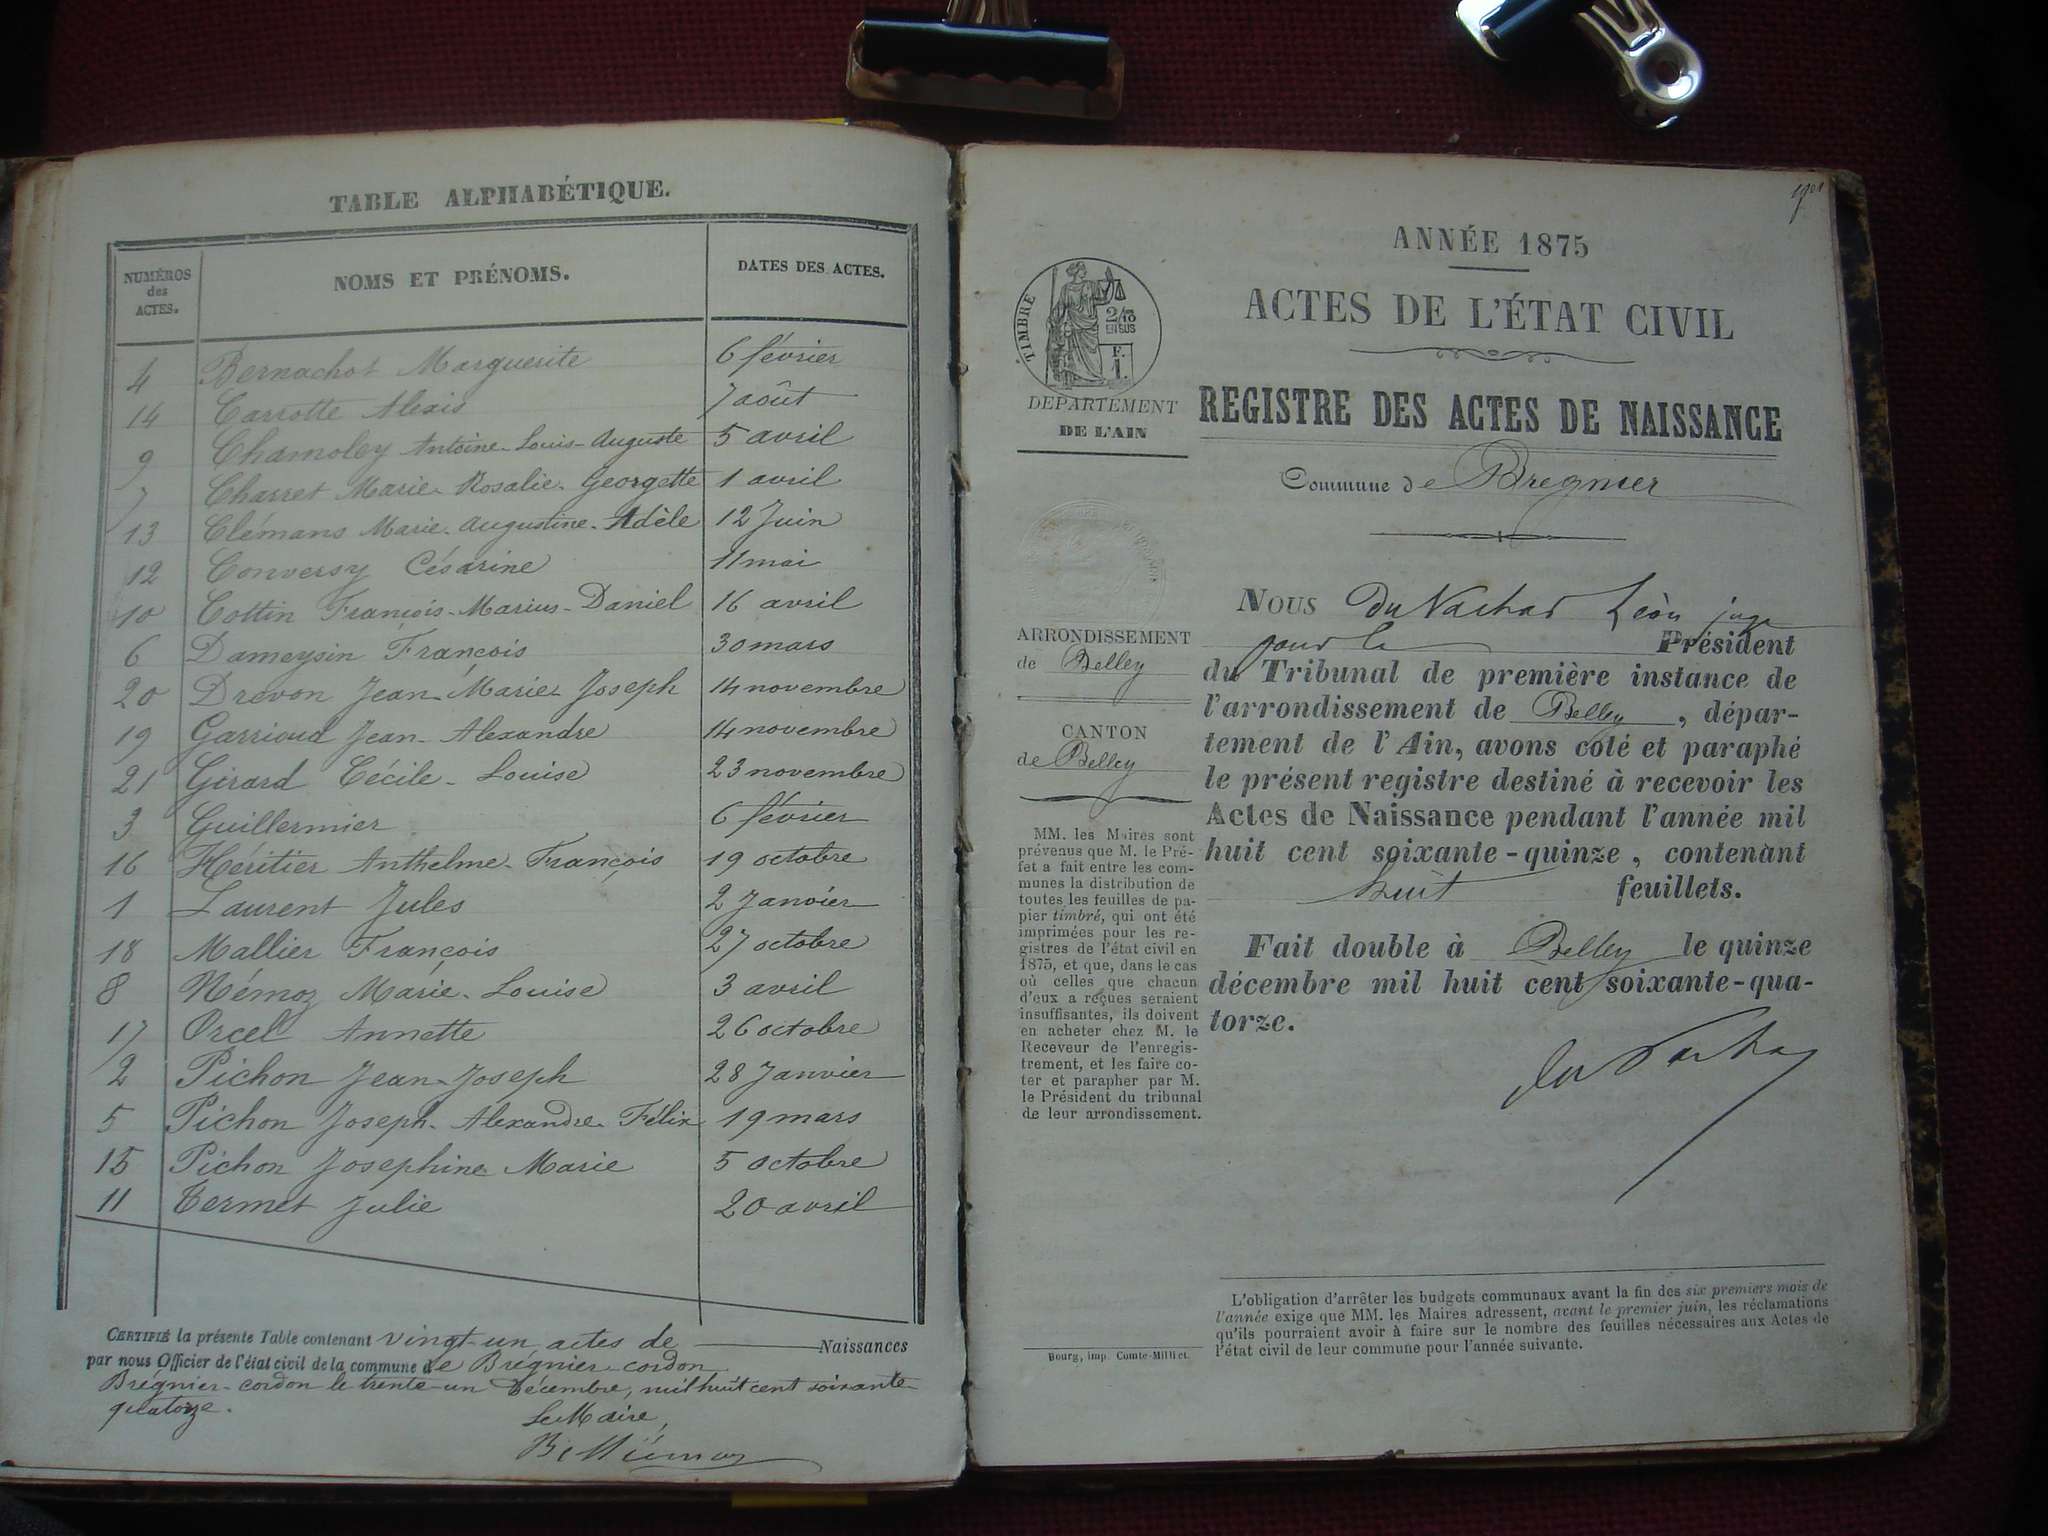 TABLE ALPHABÉTIQUE.
NUMÉROS
des
ACTES.
NOMS ET PRÉNOMS.
DATES DES ACTES.
4 Bernachot Marguerite 6 février
14 Carrotte Alexis 7 août
9 Chamoley Antoine-Louis-Auguste 5 avril
7 Charret Marie-Rosalie-Georgette 1 avril
13 Clémans Marie-Augustine-Adèle 12 Juin
12 Conversy Césarine 11 mai
10 Cottin François-Marius-Daniel 16 avril
6 Dameysin François 30 mars
20 Drevon Jean-Marie-Joseph 14 novembre
19 Garrioud Jean-Alexandre 14 novembre
21 Girard Cécile-Louise 23 novembre
3 Guillermier 6 février
16 Héritier Anthelme-François 19 octobre
1 Laurent Jules 2 Janvier
18 Mallier François 27 octobre
8 Némoz Marie-Louise 3 avril
17 Orcel Annette 26 octobre
2 Pichon Jean-Joseph 28 Janvier
5 Pichon Joseph-Alexandre-Félix 19 mars
15 Pichon Joséphine Marie 5 octobre
11 Termet Julie 20 avril
CERTIFIÉ la présente Table contenant vingt-un actes de Naissances
par nous Officier de l'état civil de la commune de Brégnier-cordon
Brégnier-cordon le trente-un Décembre, mil huit cent soixante-
quatorze.
Le Maire,
ANNÉE 1875
ACTES DE L'ÉTAT CIVIL
REGISTRE DES ACTES DE NAISSANCE
Commune de Bregnier
TIMBRE
2/10
EN SUS
F.
1.
DÉPARTEMENT
DE L'AIN
ARRONDISSEMENT
de Belley
CANTON
de Belley
MM. les Maires sont
prévenus que M. le Pré-
fet a fait entre les com-
munes la distribution de
toutes les feuilles de pa-
pier timbré, qui ont été
imprimées pour les re-
gistres de l'état civil en
1875, et que, dans le cas
où celles que chacun
d'eux a reçues seraient
insuffisantes, ils doivent
en acheter chez M. le
Receveur de l'enregis-
trement, et les faire co-
ter et parapher par M.
le Président du tribunal
de leur arrondissement.
Bourg, imp. Comte-Milliet.
NOUS Léon juge
pour le Président
du Tribunal de première instance de
l'arrondissement de Belley, dépar-
tement de l'Ain, avons coté et paraphé
le présent registre destiné à recevoir les
Actes de Naissance pendant l'année mil
huit cent soixante-quinze, contenant
huit feuillets.
Fait double à Belley le quinze
décembre mil huit cent soixante-qua-
torze.
L'obligation d'arrêter les budgets communaux avant la fin des six premiers mois de
l'année exige que MM. les Maires adressent, avant le premier juin, les réclamations
qu'ils pourraient avoir à faire sur le nombre des feuilles nécessaires aux Actes de
l'état civil de leur commune pour l'année suivante.